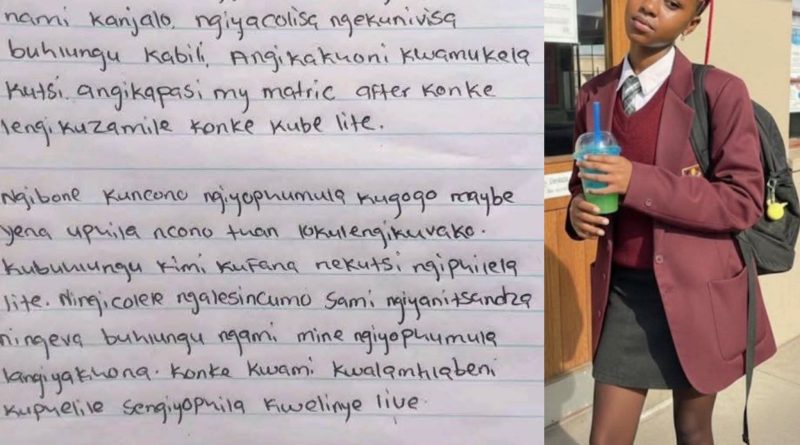 nami kanjalo, ngiyacolisa ngekunivisa
buhlungu kabili. Angikakhoni kwamukela
kutsi angikapasi my matric after konke
lengikuzamile konke kube lite.
Ngibone kuncono ngiyophumula kugogo maybe
yena uphila ncono tuan lokulengikuvako.
kubuhlungu kimi kufana nekutsi ngiphilela
lite. Ningicolele ngalesincumo sami ngiyanitsandza
ningeva buhlungu ngami mine ngiyophumula
langiyakhona. Konke kwami kwalamhlabeni
kuphelile sengiyophila kwelinye live.